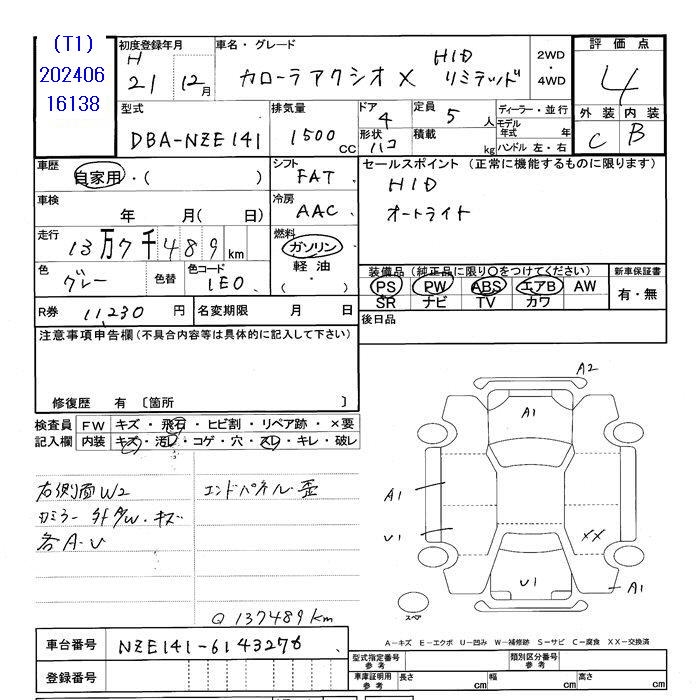 (T1)
202406
16138
初度登録年月
H
21 12月
車名・グレード
カローラアクシオ X HID リミテッド
2WD
・
4WD
評価点
4
外装 内装
C B
型式
DBA-NZE141
排気量
1500 cc
ドア
4
形状
ハコ
定員
5 人
積載
kg
ディーラー・並行
モデル
年式 年
ハンドル 左・右
車歴
自家用・( )
シフト
FAT
セールスポイント (正常に機能するものに限ります)
HID
オートライト
車検
年 月( 日)
冷房
AAC
走行
13万7千489km
燃料
ガソリン
軽油
( ・ )
色
グレー
色替
色コード
1E0
装備品(純正品に限り○をつけてください)
PS PW ABS エアB AW
SR ナビ TV カワ
新車保証書
有・無
R券 11,230 円
名変期限 月 日
後日品
注意事項申告欄(不具合内容等は具体的に記入して下さい)
修復歴 有 〔箇所 〕
検査員
記入欄
FW キズ・飛石・ヒビ割・リペア跡・×要
内装 キズ・汚レ・コゲ・穴・スレ・キレ・破レ
右側面W2
エンドパネル歪
各A・U
Q 137489km
A2
A1
A1
U1
XX
U1
A1
スペア
A-キズ E-エクボ U-凹み W-補修跡 S-サビ C-腐食 XX-交換済
車台番号 NZE141-6143276
登録番号
型式指定番号
参考
類別区分番号
参考
車庫証明用
参考
長さ cm 幅 cm 高さ cm